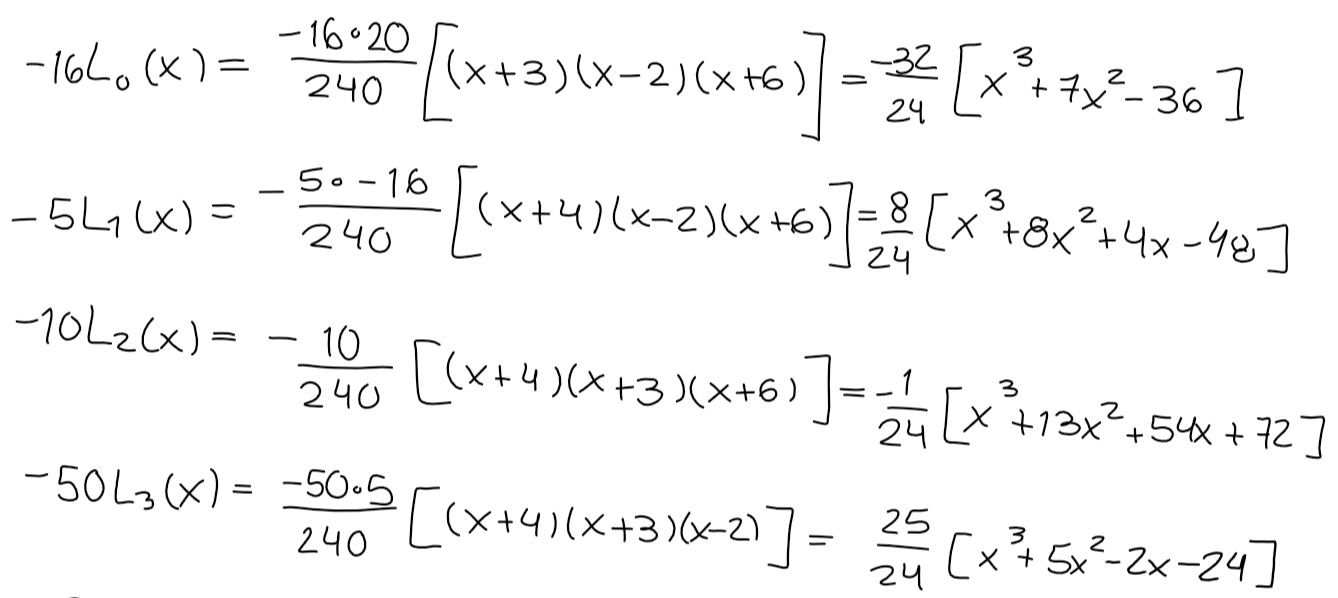 -16L₀(x) = \frac{-16·20}{240} [(x+3)(x-2)(x+6)] = \frac{-32}{24} [x³+7x²-36]
-5L₁(x) = -\frac{5·-16}{240} [(x+4)(x-2)(x+6)] = \frac{8}{24} [x³+8x²+4x-48]
-10L₂(x) = -\frac{10}{240} [(x+4)(x+3)(x+6)] = \frac{-1}{24} [x³+13x²+54x+72]
-50L₃(x) = \frac{-50·5}{240} [(x+4)(x+3)(x-2)] = \frac{25}{24} [x³+5x²-2x-24]